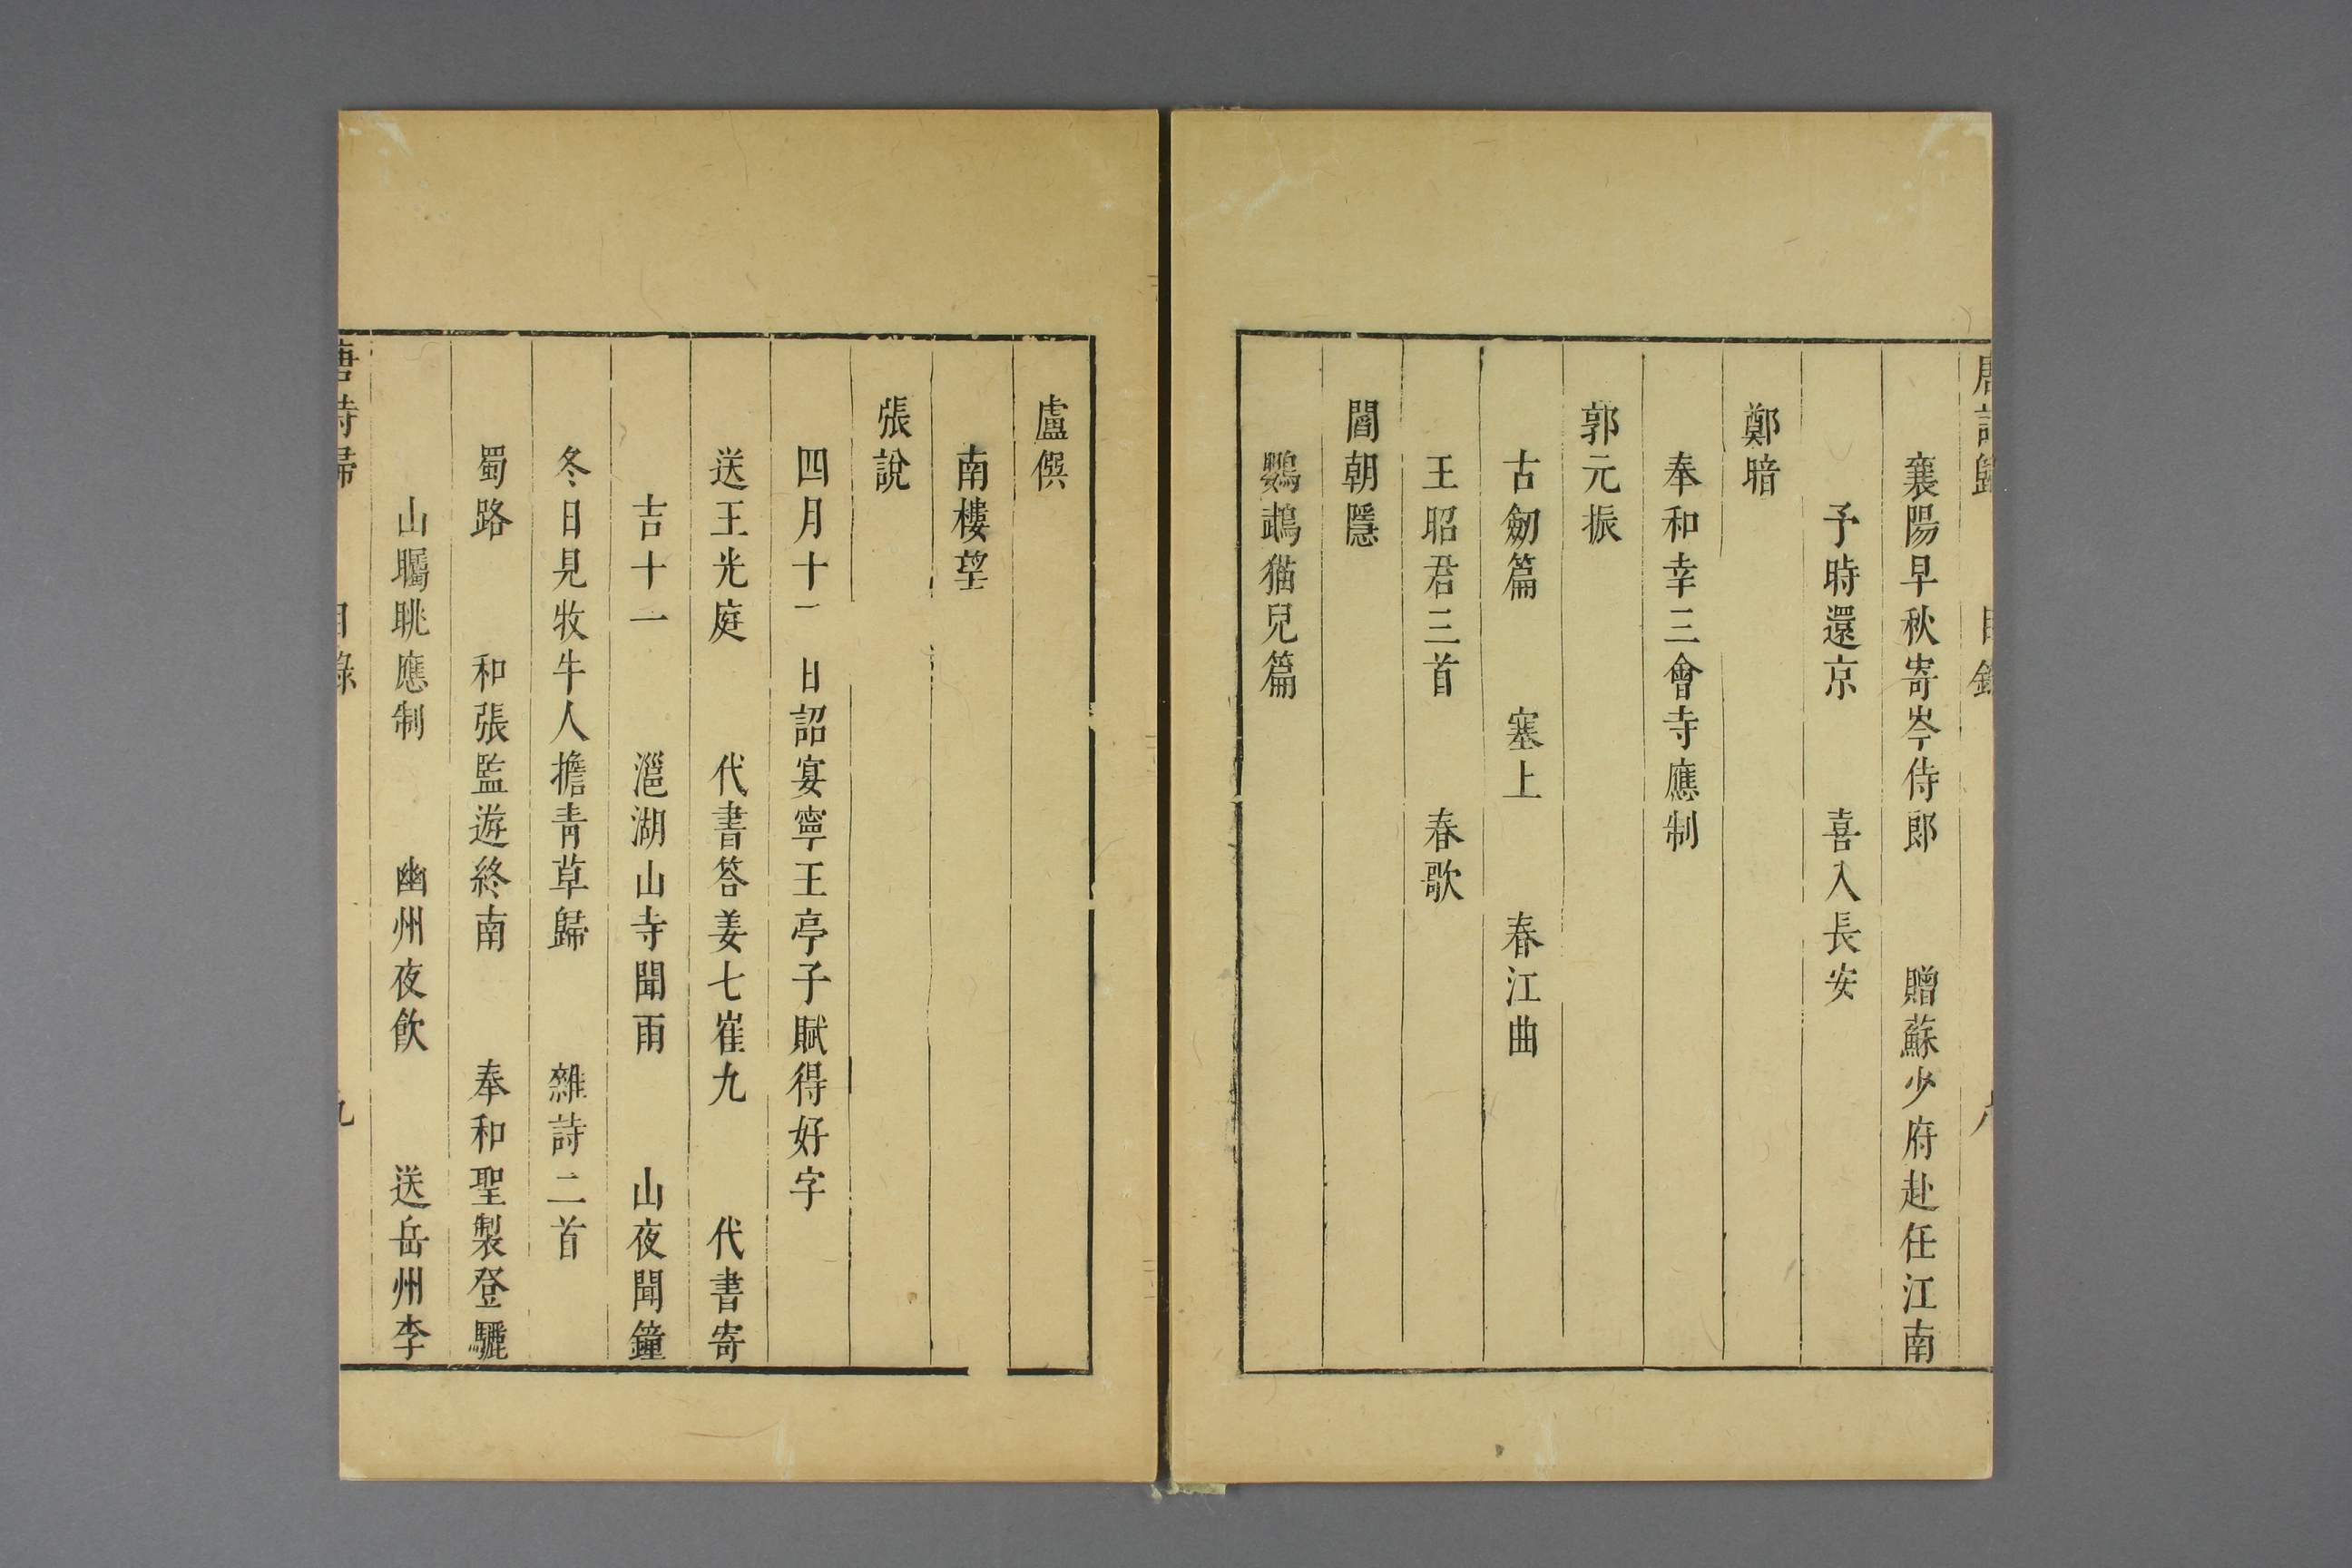 唐詩歸 目錄 八
襄陽早秋寄岑侍郎 贈蘇少府赴任江南
予時還京 喜入長安
鄭愔
奉和幸三會寺應制
郭元振
古劒篇 塞上 春江曲
王昭君三首 春歌
閻朝隱
鸚鵡猫兒篇
盧僎
南樓望
張說
四月十一日詔宴寧王亭子賦得好字
送王光庭 代書答姜七崔九 代書寄
吉十一 㴩湖山寺聞雨 山夜聞鐘
冬日見牧牛人擔青草歸 雜詩二首
蜀路 和張監遊終南 奉和聖製登驪
山矚眺應制 幽州夜飲 送岳州李
唐詩歸 目錄 九